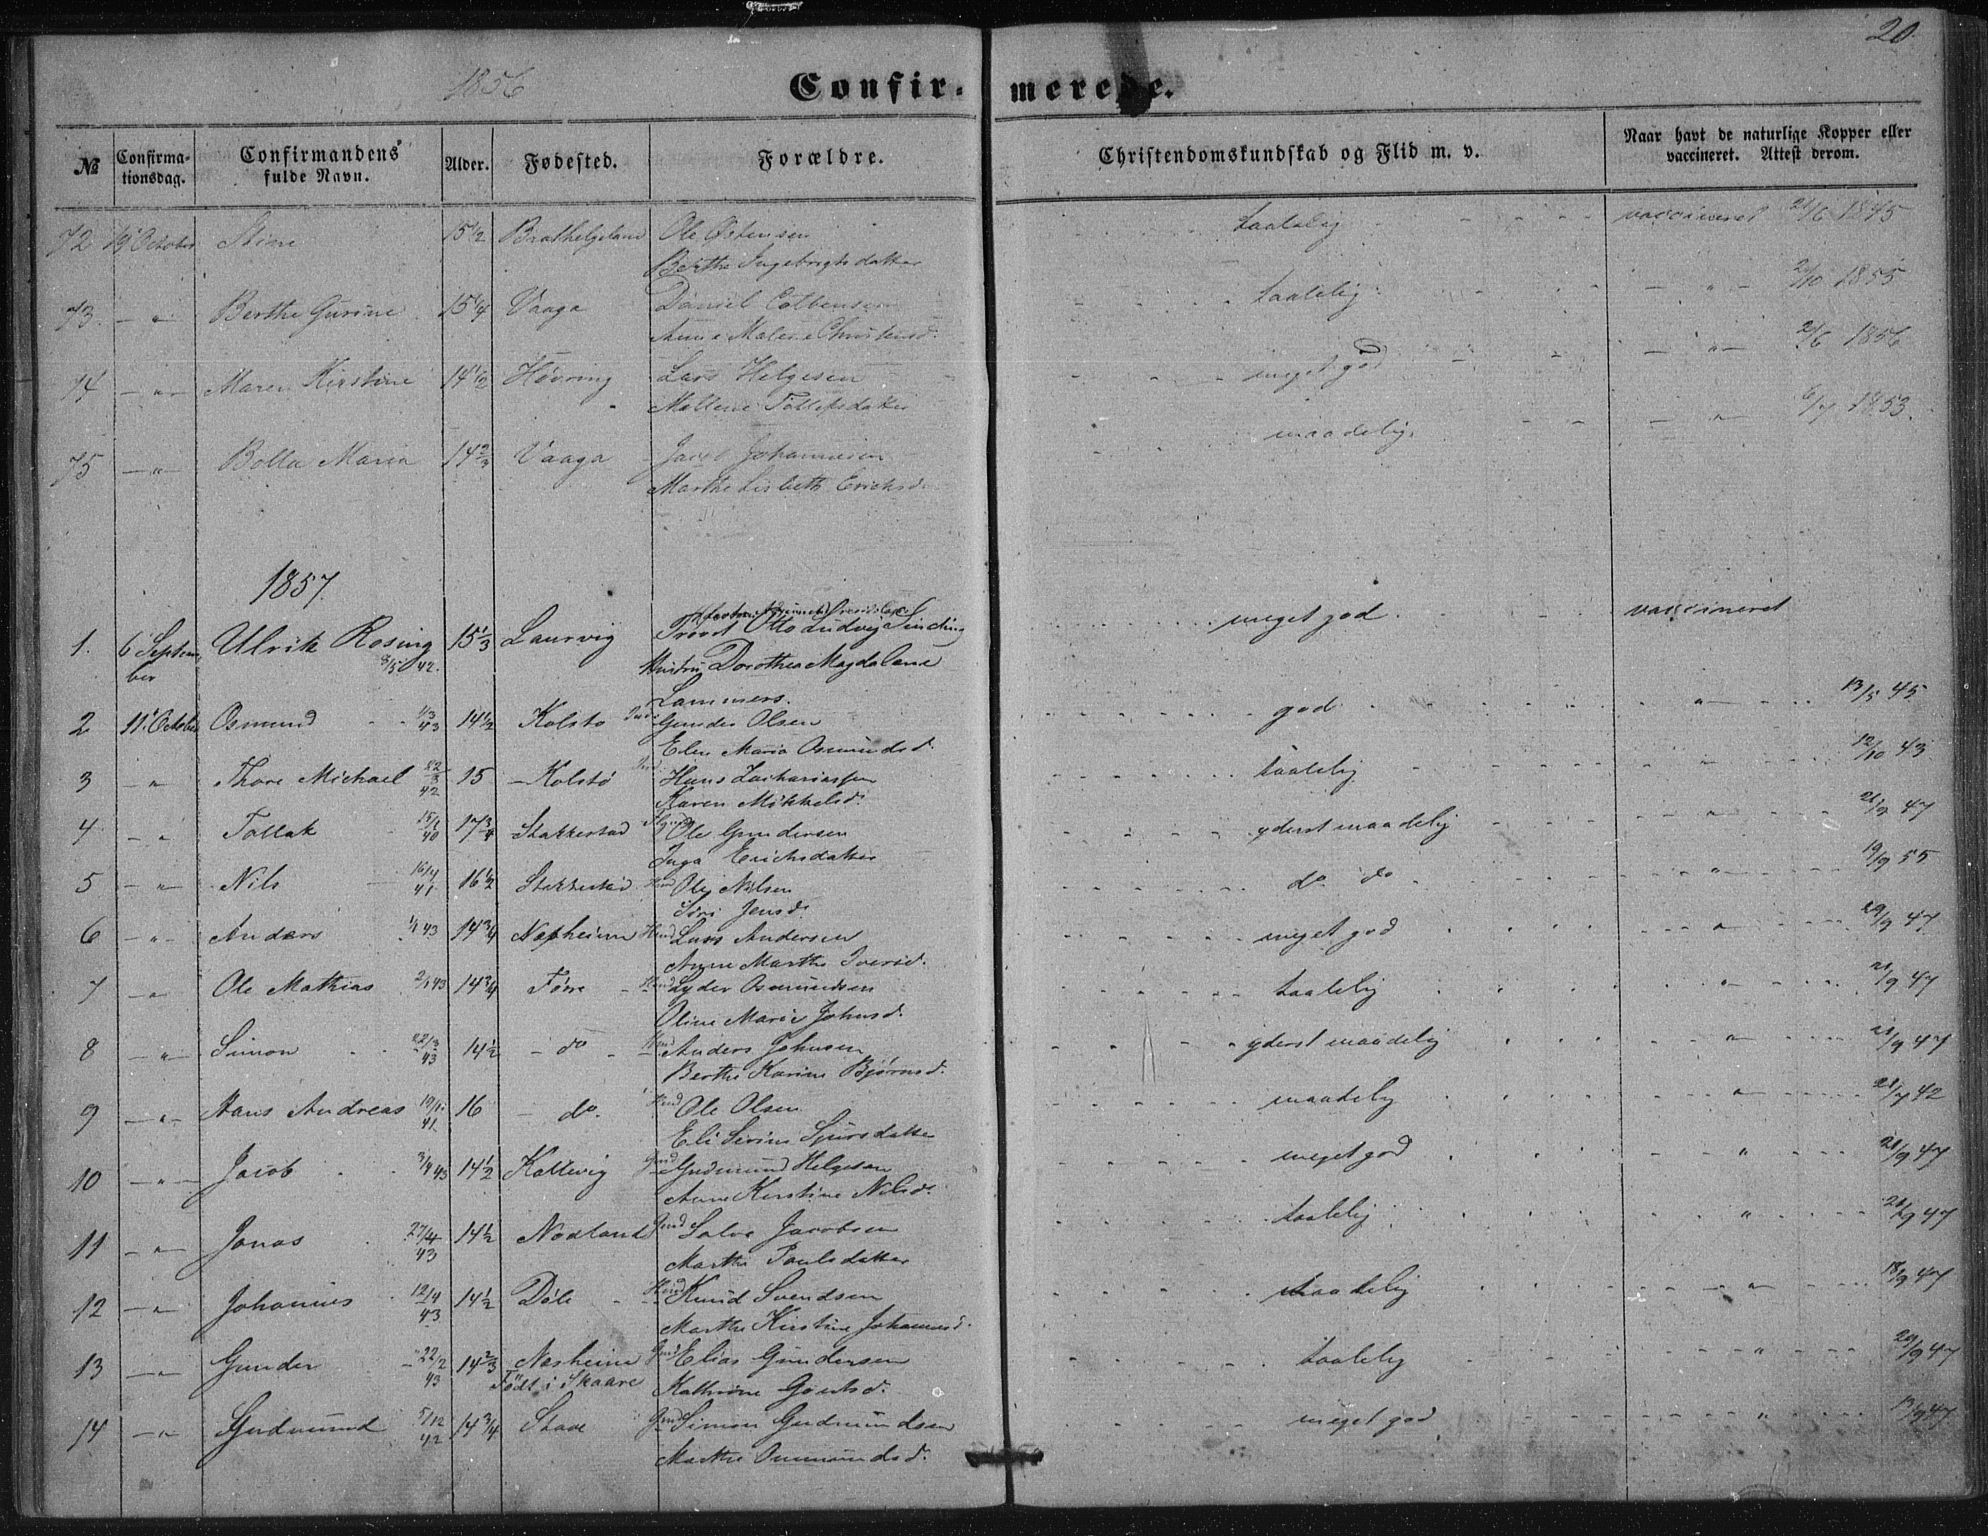 20
1856
Confir- merede.
№ Confirma-tionsdag. Confirmandens fulde Navn. Alder. Fødested. Forældre. Christendomskundskab og Flid m. v. Naar havt de naturlige Kopper eller vaccineret. Attest derom.
72 19 October Stine 15 1/2 Brathelgeland Ole Østensen taalelig vaccineret 21/6 1845
Berthe Ingebrigtsdatter
73. — " Berthe Gurine 15 1/4 Vaaga Daniel taalelig — " — 2/10 1855
Anne Malene Christensd.
74 — " — Maren Kirstine 14 1/2 Høvring Lars Helgesen meget god — " — 2/6 1856
Mallene Tollefsdatter
75 — " — Bolla Maria 14 2/3 Vaaga Jacob Johannesen maadelig. — " 6/7 1853.
Marthe Lisbeth Erichsd.
1857.
1. 6 Septem-ber Ulrik Rosing 8/5 42. 15 1/3 Laurvig Provst Otto Ludvig Sinding meget god. vaccineret
Hustru Dorothea Magdalene
Lammers.
2 11. October Osmund 43 14 1/2 Kolstø Gunder Olsen god — " — 13/5 45
Elen Maria Osmundsd.
3 — " Thore Michael 22/3 42 15 — Kolstø Hans Zachariassen taalelig " 12/10 43
Karen Mikkelsd.
4 — " Tollak 15/1 40 17 3/4 Stakkestad Ole Gundersen yderst maadelig " 21/9 47
Inga Erichsdatter
5 — " — Nils 16/4 41 16 1/2 Stakkestad Ole Nilsen do do " 19/9 55
Siri Jensd.
6 — " — Anders 43 14 3/4 Nesheim Lars Andersen meget god " 20/9 47
Anne Marthe Iversd.
7 — " Ole Mathias 2/1 43 14 3/4 Førre Lyder Osmundsen taalelig " 21/9 47
Oline Marie Johnsd.
8 — " — Simon 22/3 43 14 1/2 — do — Anders Johnsen yderst maadelig " 21/9 47
Berthe Karine Bjørnsd.
9 — " — Hans Andreas 41 16 — do. Ole Olsen maadelig " 42
Eli Serine Sjursdatter
10 — " — Jacob 3/4 43 14 1/2 Kallevig Gudmund Helgesen meget god " 21/9 47
Anne Kirstine Nilsd.
11 — " — Jonas 27/4 43 14 1/2 Nodland Salve Jacobsen taalelig " 21/9 47
Marthe Paulsdatter
12 — " Johannes 12/4 43 14 1/2 Døle Knud Svendsen maadelig " 18/9 47
Marthe Kirstine Johannesd.
13 — " Gunder 22/2 43 14 2/3 Nesheim Elias Gundersen taalelig " 20/9 47
Født i Skaare Kathrine
14 — " Gudmund 5/12 42 14 3/4 Stave Simon Gudmundsen meget god " 13/9 47
Marthe Ommundsd.